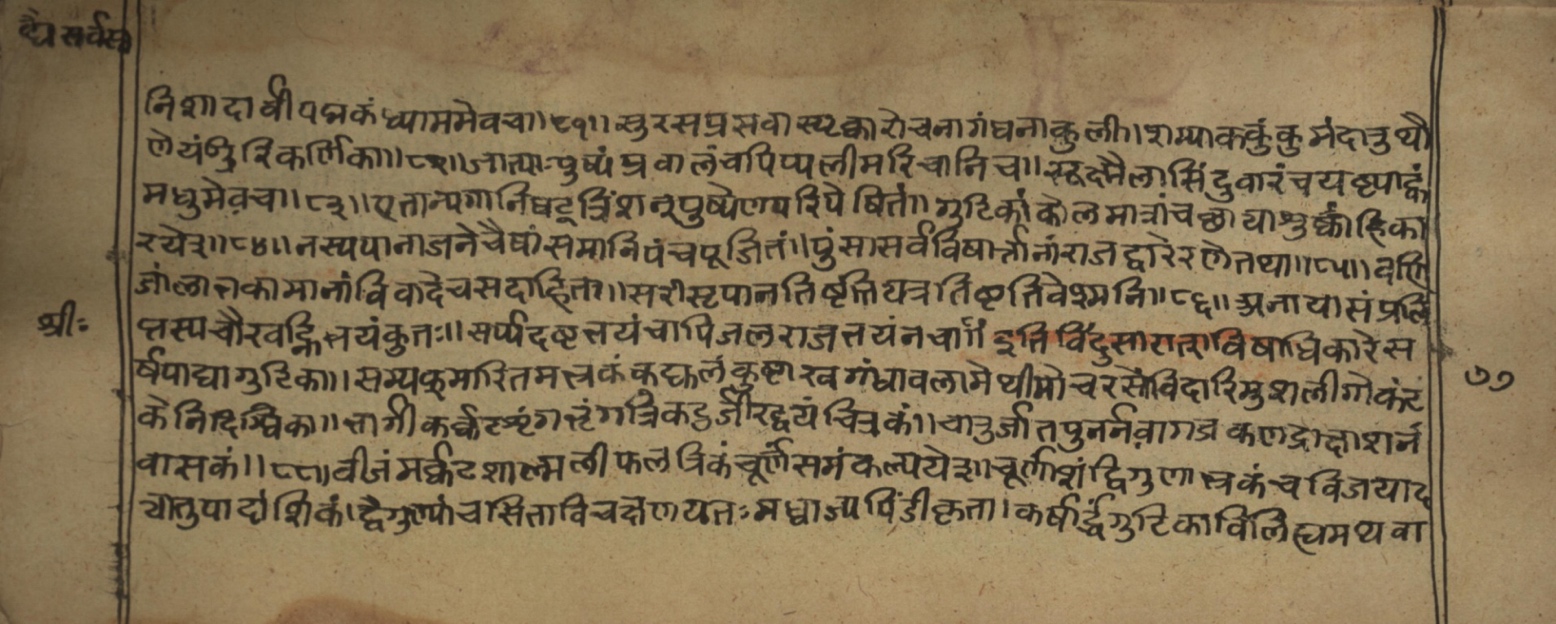 वै॰ सर्वस्व
निशादार्वीपद्मकंध्याममेवच॥८१॥सुरसप्रसवास्पृक्कारोचनागंधनाकुली॥शम्याककुंकुमंदारुथौ
लेयंभूरिकर्लिका॥८२॥जात्याःपुष्पंप्रवालंचपिप्पलीमरिचानिच॥सूक्ष्मैलासिंदुवारंचयष्ट्याह्वं
मधुमेवच॥८३॥एतान्यगानिषट्त्रिंशत्पुष्येणपरिपेषितं॥गुटिकांकोलमात्रांचछायाशुष्कांहिका
रयेत्॥८४॥नस्यपानांजनेचैषांसमानिपंचपूजितं॥पुंसांसर्वविषार्त्तानांराजद्वारेरणेतथा॥८५॥वणि
जांलाभकामानांविवादेचसदाहिता॥सरीसृपानतिष्ठंतियत्रतिष्ठतिवेश्मनि॥८६॥अनायासंप्रलि
प्तस्यचौरवह्निभयंकुतः॥सर्प्पदष्टभयंचापिजलराजभयंनच॥इतिविंदुसारात्राविषाधिकारेस
र्षपाद्यागुटिका॥सम्यक्मारितमभ्रकंकट्फलंकुष्टाश्वगंधाबलामेथीमोचरसोविदारिमुशलीगोकंट
केनिदिग्धिका॥भार्गीकर्कटशृंगभृंगत्रिकटुर्जीरद्वयंचित्रकं॥चातुर्जातपुनर्नवागजकणाद्राक्षाशनं
वासकं॥८८॥वीजंमर्कटशाल्मलीफलत्रिकंचूर्णंसमंकल्पयेत्॥चूर्णांशंद्विगुणाभ्रकंचविजयाद
द्यातुपादांशिकं।द्वैगुण्यांचसिताविचक्षणयतःमध्वाज्यपिंडीकृता।कर्षार्द्धगुटिकाविलिह्यमथवा
श्रीः
७७